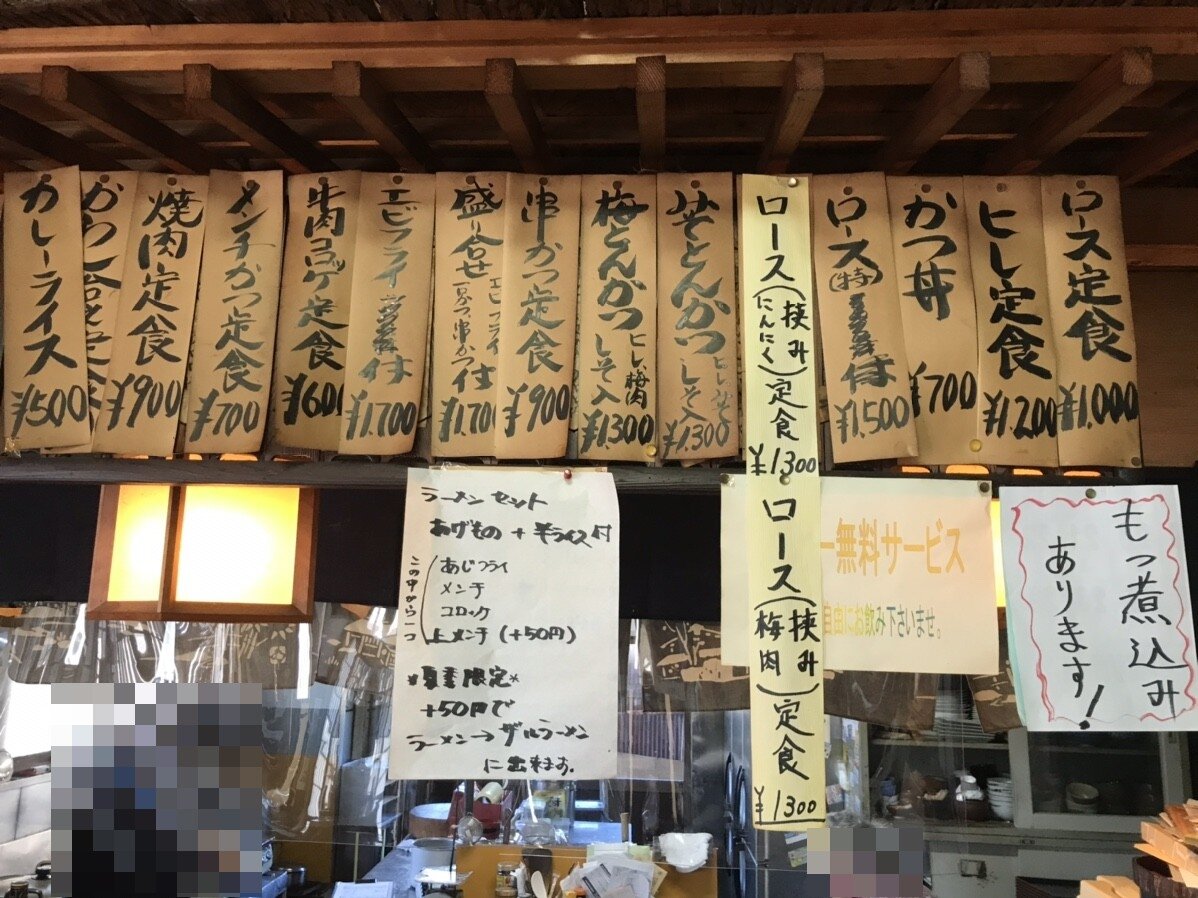 ロース定食
¥1,000
ヒレ定食
¥1,200
かつ丼
¥700
ロース(特)
付
¥1,500
ロース(挟み
にんにく)定食
¥1300
ロース(挟み
梅肉)定食
¥1300
みそとんかつ
しそ入
¥1300
梅とんかつ
ヒレ梅肉
しそ入
¥1300
串かつ定食
¥900
盛り合せ
エビフライ
一口かつ串かつ付
¥1,700
エビフライ
付
¥1,700
牛肉コロッケ定食
¥600
メンチかつ定食
¥700
焼肉定食
¥900
かつ
カレーライス
¥500
ラーメンセット
あげもの+半ライス付
この中から一つ
あじフライ
メンチ
コロッケ
上メンチ(+50円)
*夏季限定*
+50円で
ラーメン→ザルラーメン
に出来ます。
ー無料サービス
自由にお飲み下さいませ。
もつ煮込み
あります!